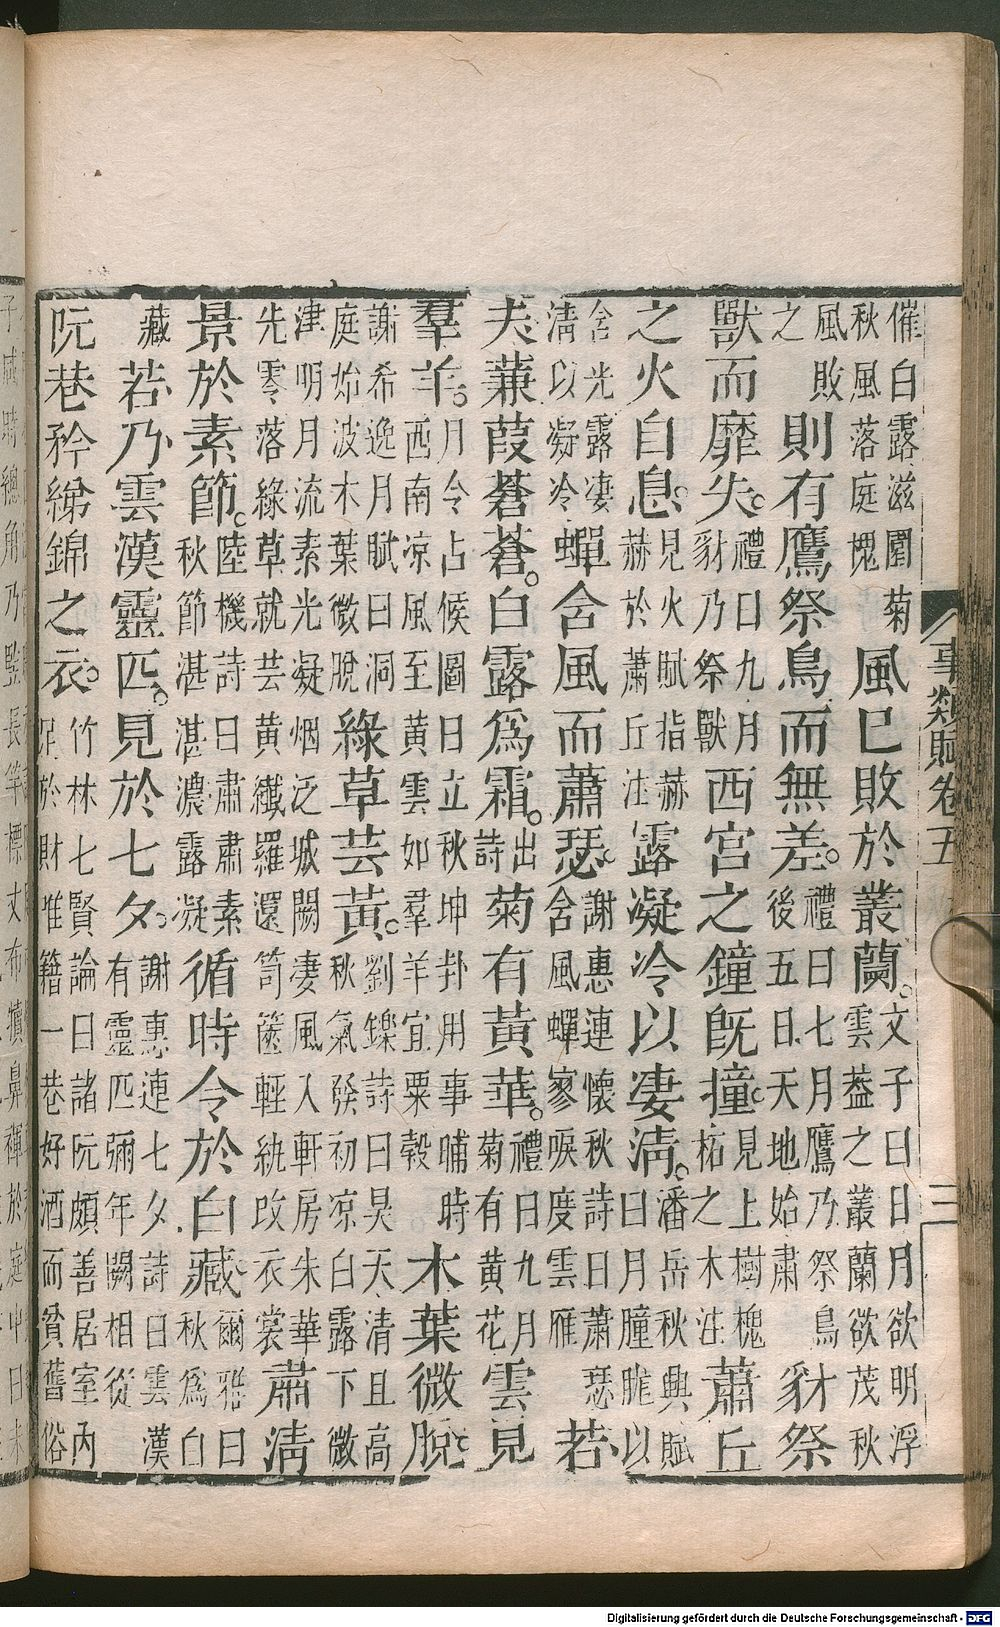 事類賦卷五 三
催白露滋園菊秋風落庭槐風已敗於叢蘭。文子曰日月欲明浮雲蓋之叢蘭欲茂秋
風敗之則有鷹祭鳥而無差。禮曰七月鷹乃祭鳥後五日天地始肅豺祭
獸而靡失。禮曰九月豺乃祭獸西宮之鐘旣撞。見上樹槐柘之木注蕭丘
之火自息。見火賦指赫赫於蕭丘注露凝冷以凄清。潘岳秋興賦曰月朣朧以
含光露凄清以凝冷蟬含風而蕭瑟。謝惠連懷秋詩曰蕭瑟含風蟬寥唳度雲雁若
夫蒹葭蒼蒼。白露爲霜。出詩菊有黃華。禮曰九月菊有黃花雲見
羣羊。月令占候圖曰立秋坤卦用事晡時西南凉風至黃雲如羣羊宜粟穀木葉微脫。
謝希逸月賦曰洞庭始波木葉微脫綠草芸黃。劉鑠詩曰昊天清且高秋氣發初凉白露下微
津明月流素光凝烟泛城闕凄風入軒房朱華先零落綠草就芸黃纖羅還笥篋輕紈改衣裳蕭清
景於素節。陸機詩曰肅肅素秋節湛湛濃露凝循時令於白藏。爾雅曰秋爲白
藏若乃雲漢靈匹。見於七夕。謝惠連七夕詩曰雲漢有靈匹彌年闕相從
阮巷矜綈錦之衣。竹林七賢論曰諸阮頗善居室內足於財唯籍一巷好酒而貧舊俗
子咸時總角乃竪長竿標大布犢鼻褌於庭中曰未
Digitalisierung gefördert durch die Deutsche Forschungsgemeinschaft - DFG